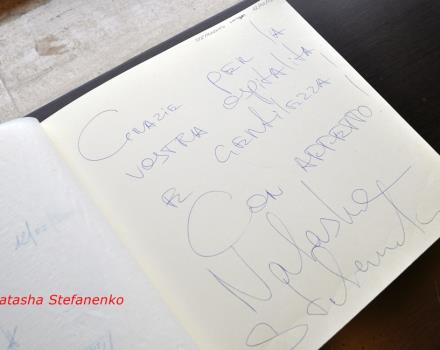 GRAZIE PER LA
VOSTRA OSPITALITÀ
E GENTILEZZA!
CON AFFETTO!
Natasha
Stefanenko
atasha Stefanenko